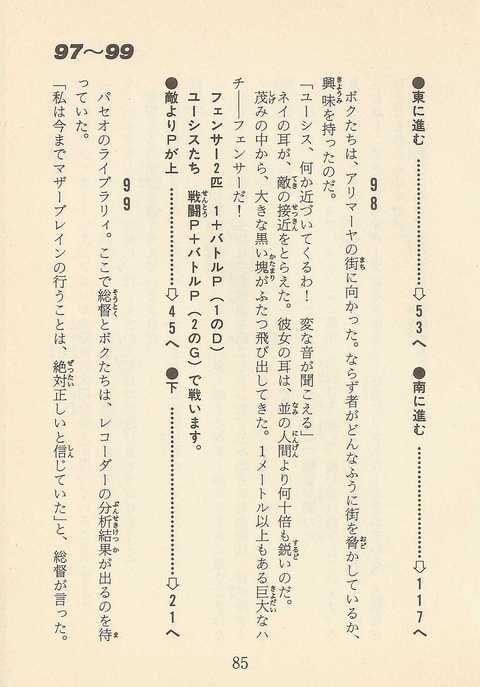 97〜99
●東に進む…………⇨53へ ●南に進む…………⇨117へ
98
ボクたちは、アリマーヤの街に向かった。ならず者がどんなふうに街を脅かしているか、
興味を持ったのだ。
「ユーシス、何か近づいてくるわ！ 変な音が聞こえる」
ネイの耳が、敵の接近をとらえた。彼女の耳は、並の人間より何十倍も鋭いのだ。
茂みの中から、大きな黒い塊がふたつ飛び出してきた。１メートル以上もある巨大なハ
チ――フェンサーだ！
フェンサー２匹 １＋バトルＰ（１のＤ）
ユーシスたち 戦闘Ｐ＋バトルＰ（２のＧ）で戦います。
●敵よりＰが上…………⇨45へ ●下…………⇨21へ
99
パセオのライブラリィ。ここで総督とボクたちは、レコーダーの分析結果が出るのを待
っていた。
「私は今までマザーブレインの行うことは、絶対正しいと信じていた」と、総督が言った。
85